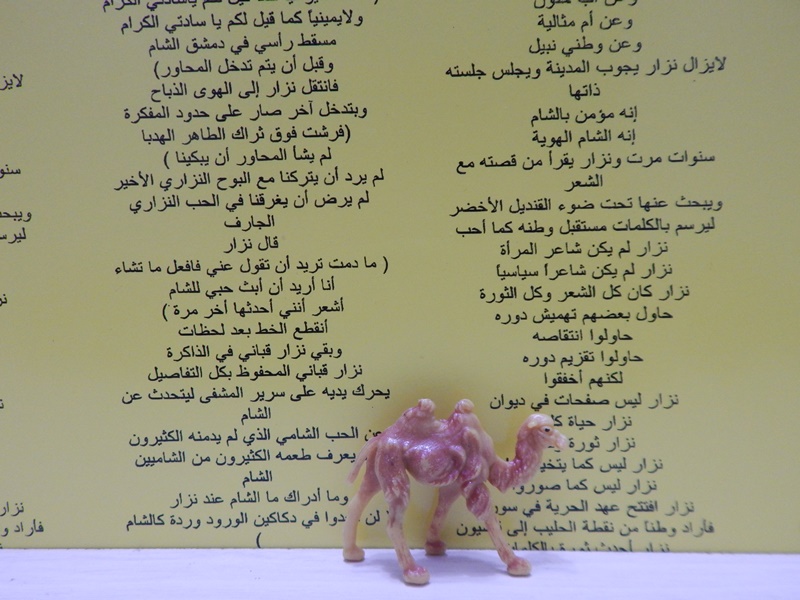 وعن أم مثالية
وعن وطني نبيل
لايزال نزار يجوب المدينة ويجلس جلسته
ذاتها
إنه مؤمن بالشام
إنه الشام الهوية
سنوات مرت ونزار يقرأ من قصته مع
الشعر
ويبحث عنها تحت ضوء القنديل الأخضر
ليرسم بالكلمات مستقبل وطنه كما أحب
نزار لم يكن شاعر المرأة
نزار لم يكن شاعراً سياسياً
نزار كان كل الشعر وكل الثورة
حاول بعضهم تهميش دوره
حاولوا انتقاصه
حاولوا تقزيم دوره
لكنهم أخفقوا
نزار ليس صفحات في ديوان
نزار حياة
نزار ثورة
نزار ليس كما
نزار ليس كما
نزار افتتح عهد الحرية في
فأراد وطناً من نقطة الحليب إلى
نزار أحدث ثورة
ولايمينياً كما قيل لكم يا سادتي الكرام
مسقط رأسي في دمشق الشام
وقبل أن يتم تدخل المحاور)
فانتقل نزار إلى الهوى الذباح
وبتدخل آخر صار على حدود المفكرة
(فرشت فوق ثراك الطاهر الهدبا
لم يشأ المحاور أن يبكينا )
لم يرد أن يتركنا مع البوح النزاري الأخير
لم يرض أن يغرقنا في الحب النزاري
الجارف
قال نزار
( ما دمت تريد أن تقول عني فافعل ما تشاء
أنا أريد أن أبث حبي للشام
أشعر أنني أحدثها أخر مرة )
أنقطع الخط بعد لحظات
وبقي نزار قباني في الذاكرة
نزار قباني المحفوظ بكل التفاصيل
يحرك يديه على سرير المشفى ليتحدث عن
الشام
عن الحب الشامي الذي لم يدمنه الكثيرون
يعرف طعمه الكثيرون من الشاميين
الشام
وما أدراك ما الشام عند نزار
لن في دكاكين الورود وردة كالشام
)